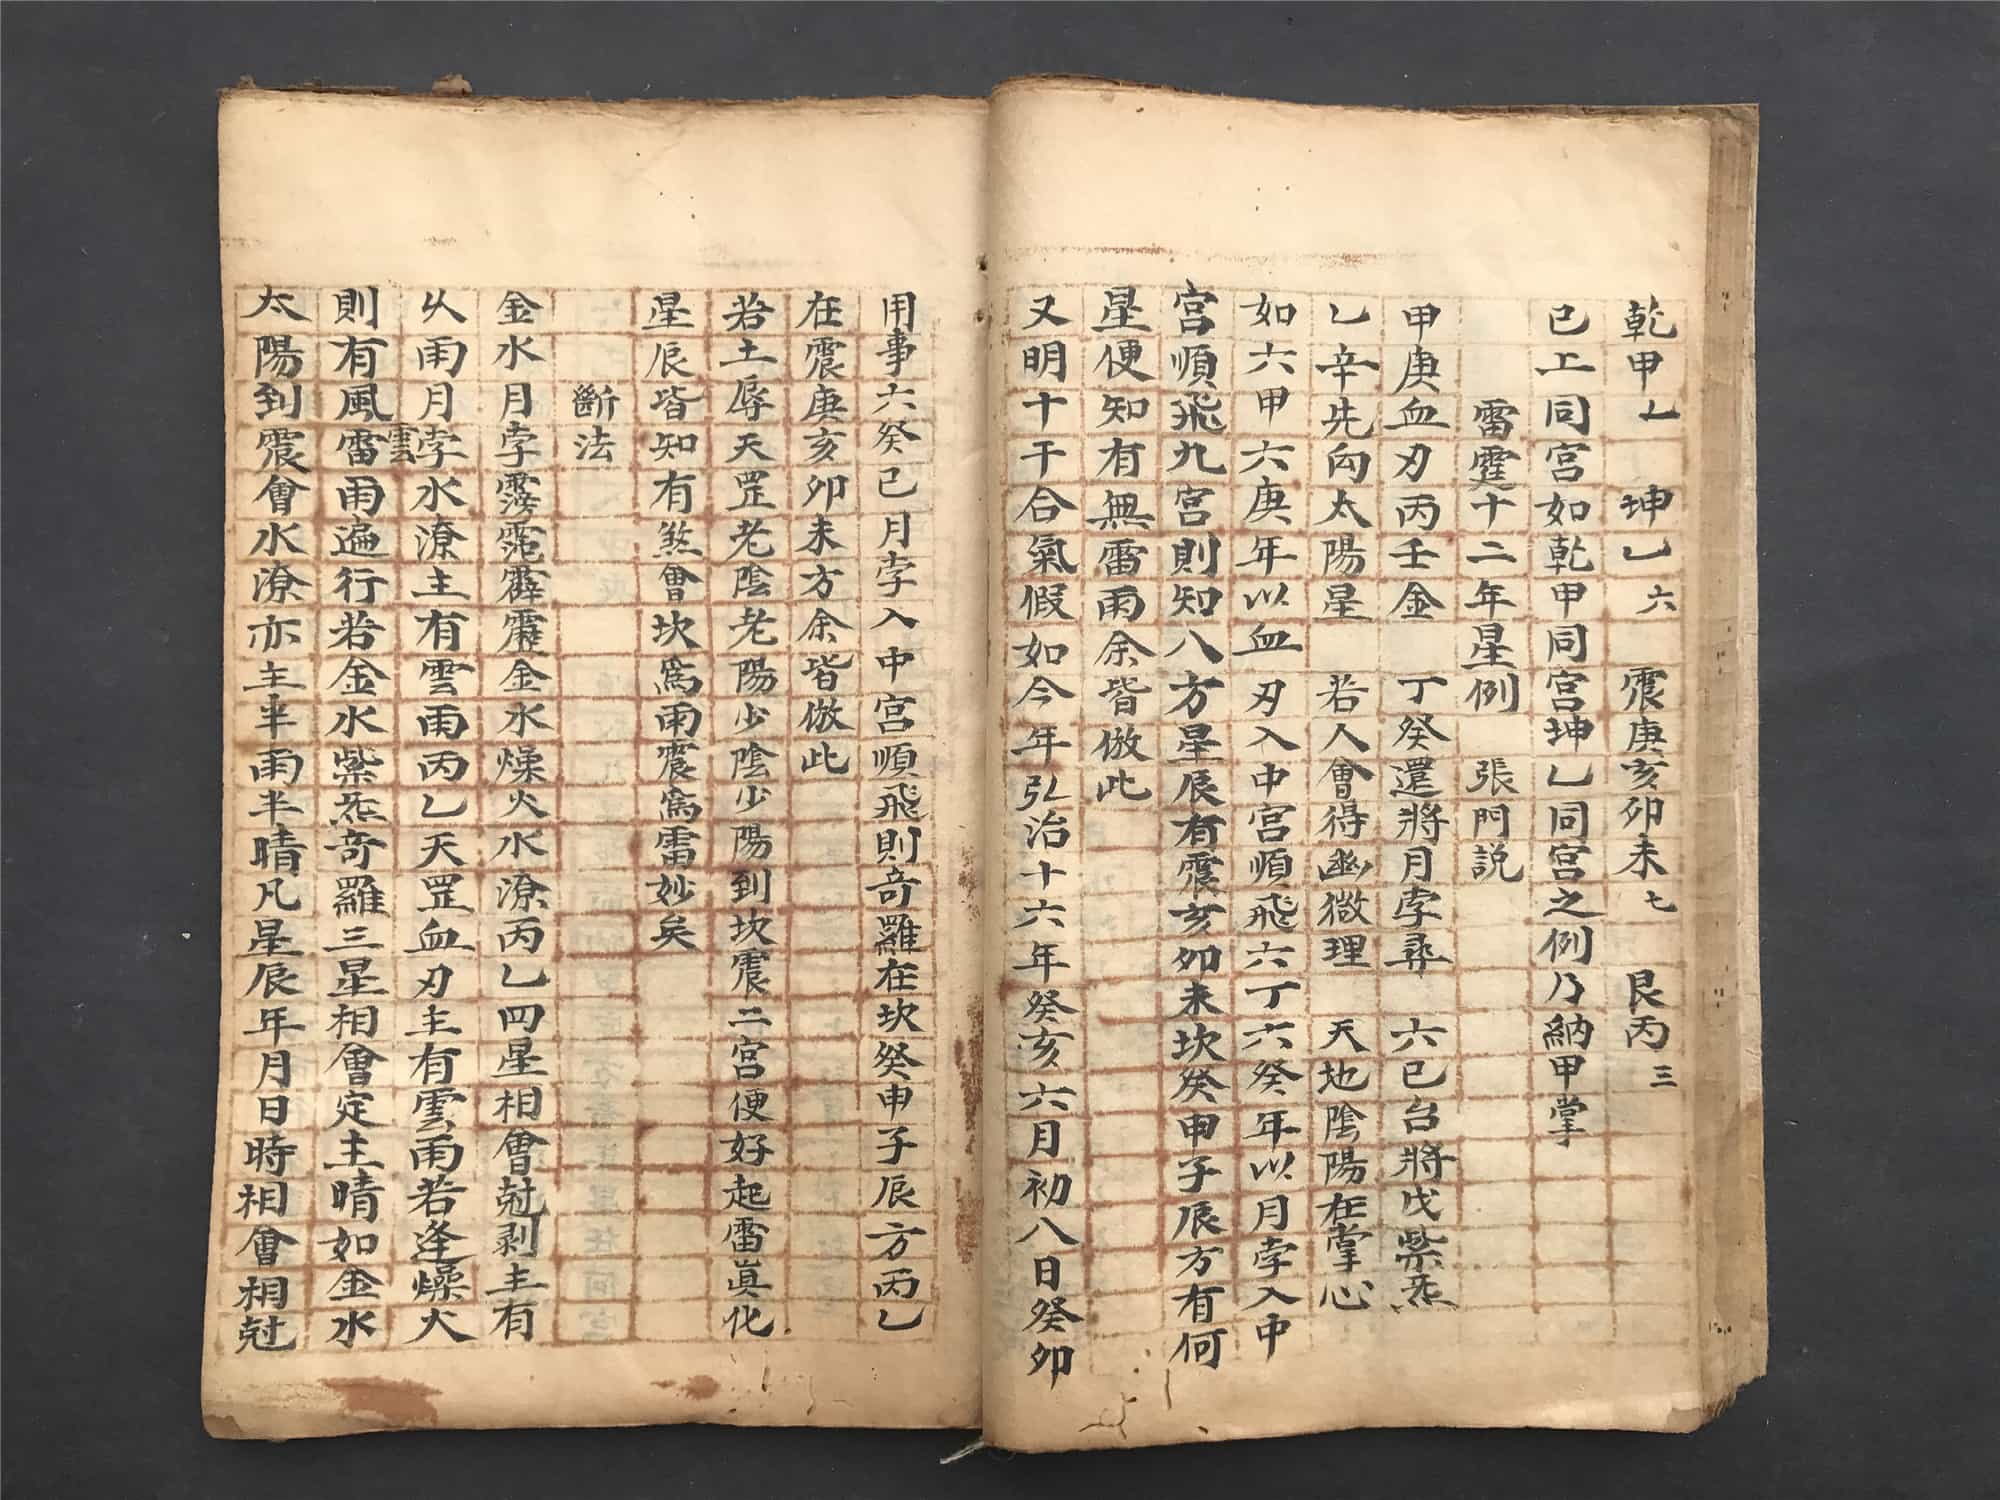 乾甲一　坤乙六　震庚亥卯未七　艮丙三
已上同宫如乾甲同宫坤乙同宫之例乃納甲掌
雷霆十二年星例　張門説
甲庚血刃丙壬金　丁癸還將月孛尋　六巳台將戊紫炁
乙辛先向太陽星　若人會得幽微理　天地陰陽在掌心
如六甲六庚年以血刃入中宫順飛六丁六癸年以月孛入中
宫順飛九宫則知八方星辰有震亥卯未坎癸申子辰方有何
星便知有無雷雨余皆倣此
又明十干合氣假如今年弘治十六年癸亥六月初八日癸卯
用事六癸已月孛入中宫順飛則奇羅在坎癸申子辰方丙乙
在震庚亥卯未方余皆倣此
若土辱天罡老陰老陽少陰少陽到坎震二宫便好起雷眞化
星辰皆知有煞會坎爲雨震爲雷妙矣
斷法
金水月孛霶霑霹靂金水燥火水潦丙乙四星相會尅剥主有
久雨月孛水潦主有雲雨丙乙天罡血刃主有雲雨若逢燥火
雲
則有風雷雨遍行若金水紫炁奇羅三星相會定主晴如金水
太陽到震會水潦亦主半雨半晴凡星辰年月日時相會相尅